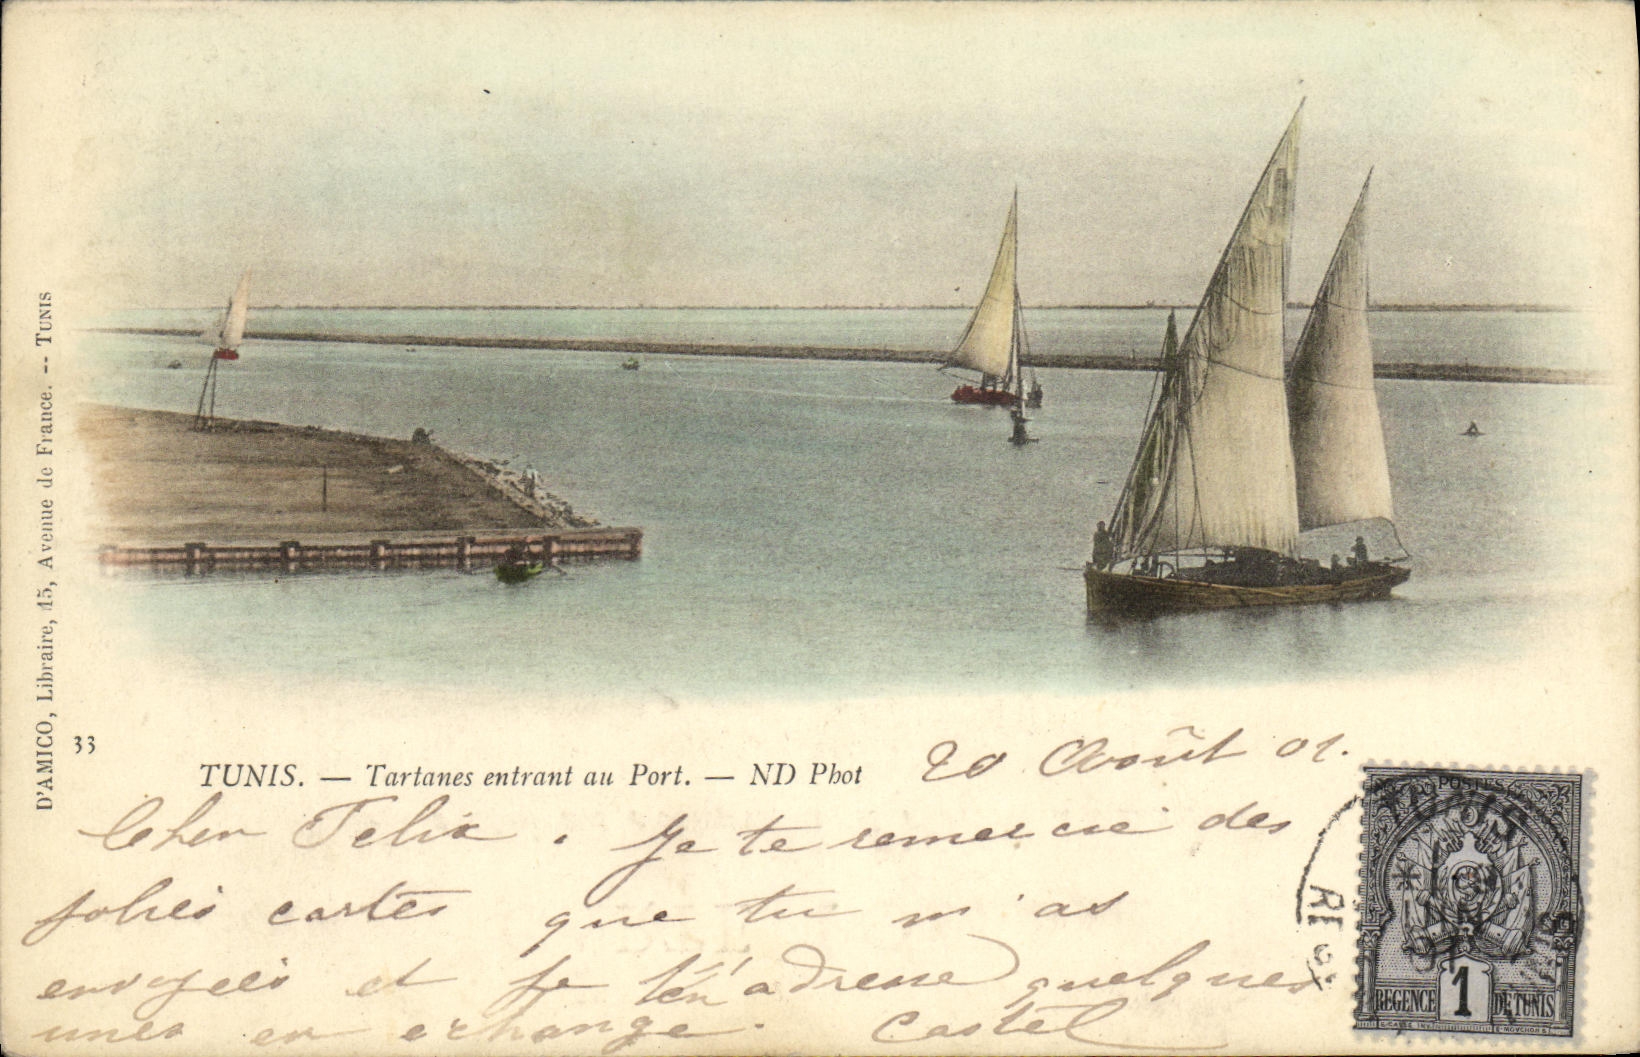 D'AMICO, Libraire, 15, Avenue de France. -- TUNIS
33
TUNIS. — Tartanes entrant au Port. — ND Phot
20 Août 01.
Cher Felix. Je te remercie des
jolies cartes que tu m'as
envoyées et je t'en adresse quelques
unes en echange. Castel
POSTES
REGENCE 1 DE TUNIS